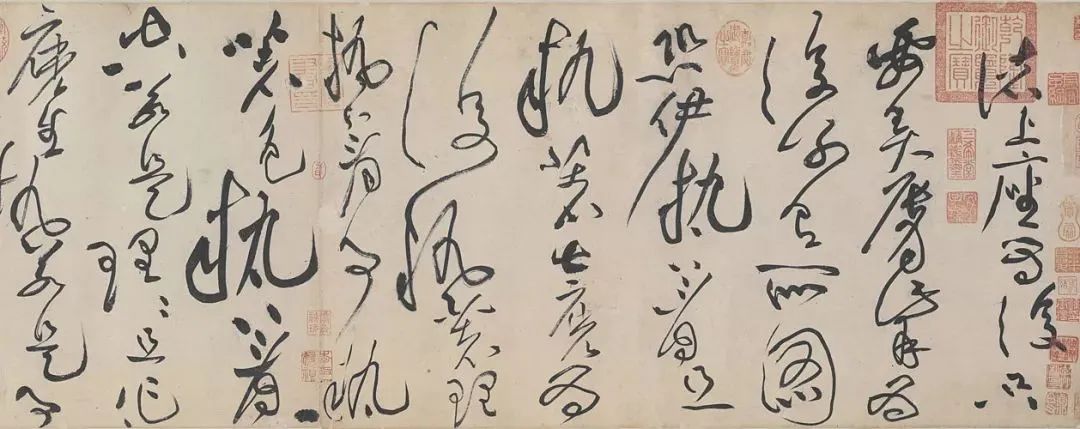 諸上座為復只
要弄脣觜為
復別有所圖
恐伊執著且
執著甚麼為
復執著理
執著事執
著色執著
空若是理〻且作
麼生執若是事
乾隆御覽之寶